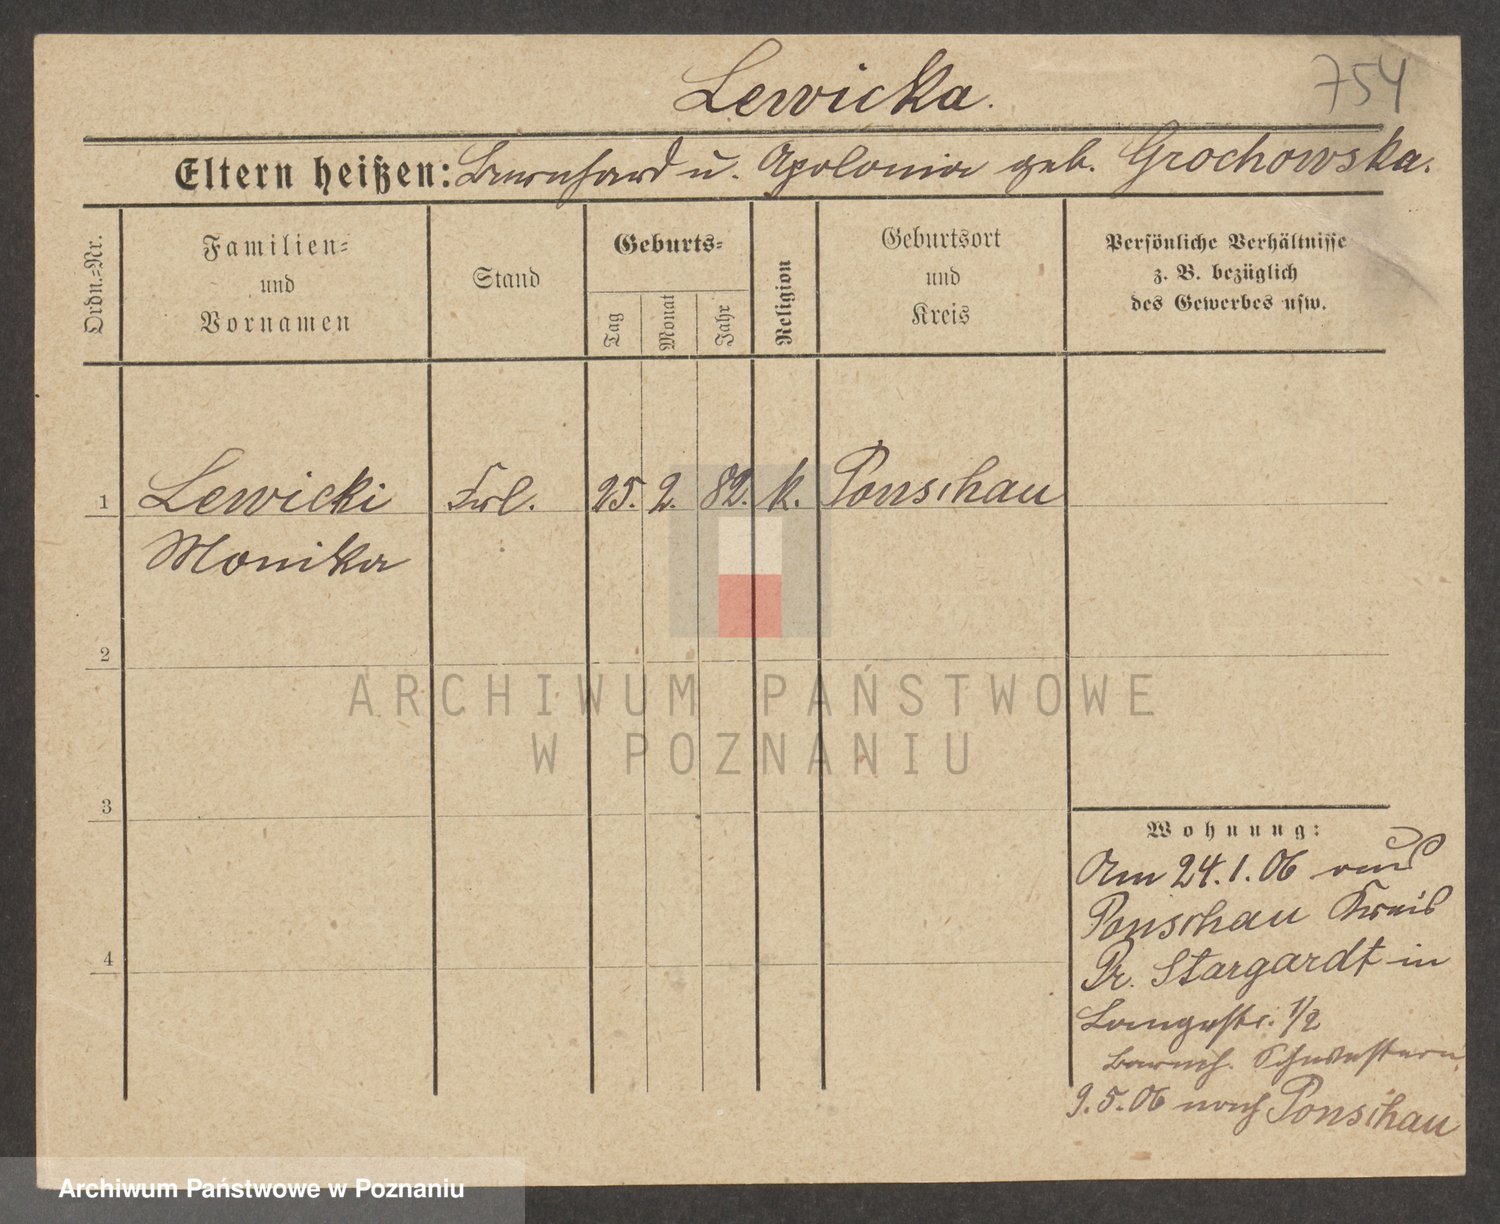 Lewicka.
754
Eltern heißen: Bernhard u. Apolonia geb. Grochowska.
Ordn.=Nr.
Familien=
und
Vornamen
Stand
Geburts=
Tag
Monat
Jahr
Religion
Geburtsort
und
Kreis
Persönliche Verhältnisse
z. B. bezüglich
des Gewerbes usw.
1 Lewicki Frl. 25. 2. 82. k. Ponschau
Monika
2
3
4
ARCHIWUM PAŃSTWOWE
W POZNANIU
Wohnung:
Am 24.1.06 aus
Ponschau Kreis
Pr. Stargardt in
Langestr. 1/2
Barmh. Schwestern.
9.5.06 nach Ponschau
Archiwum Państwowe w Poznaniu